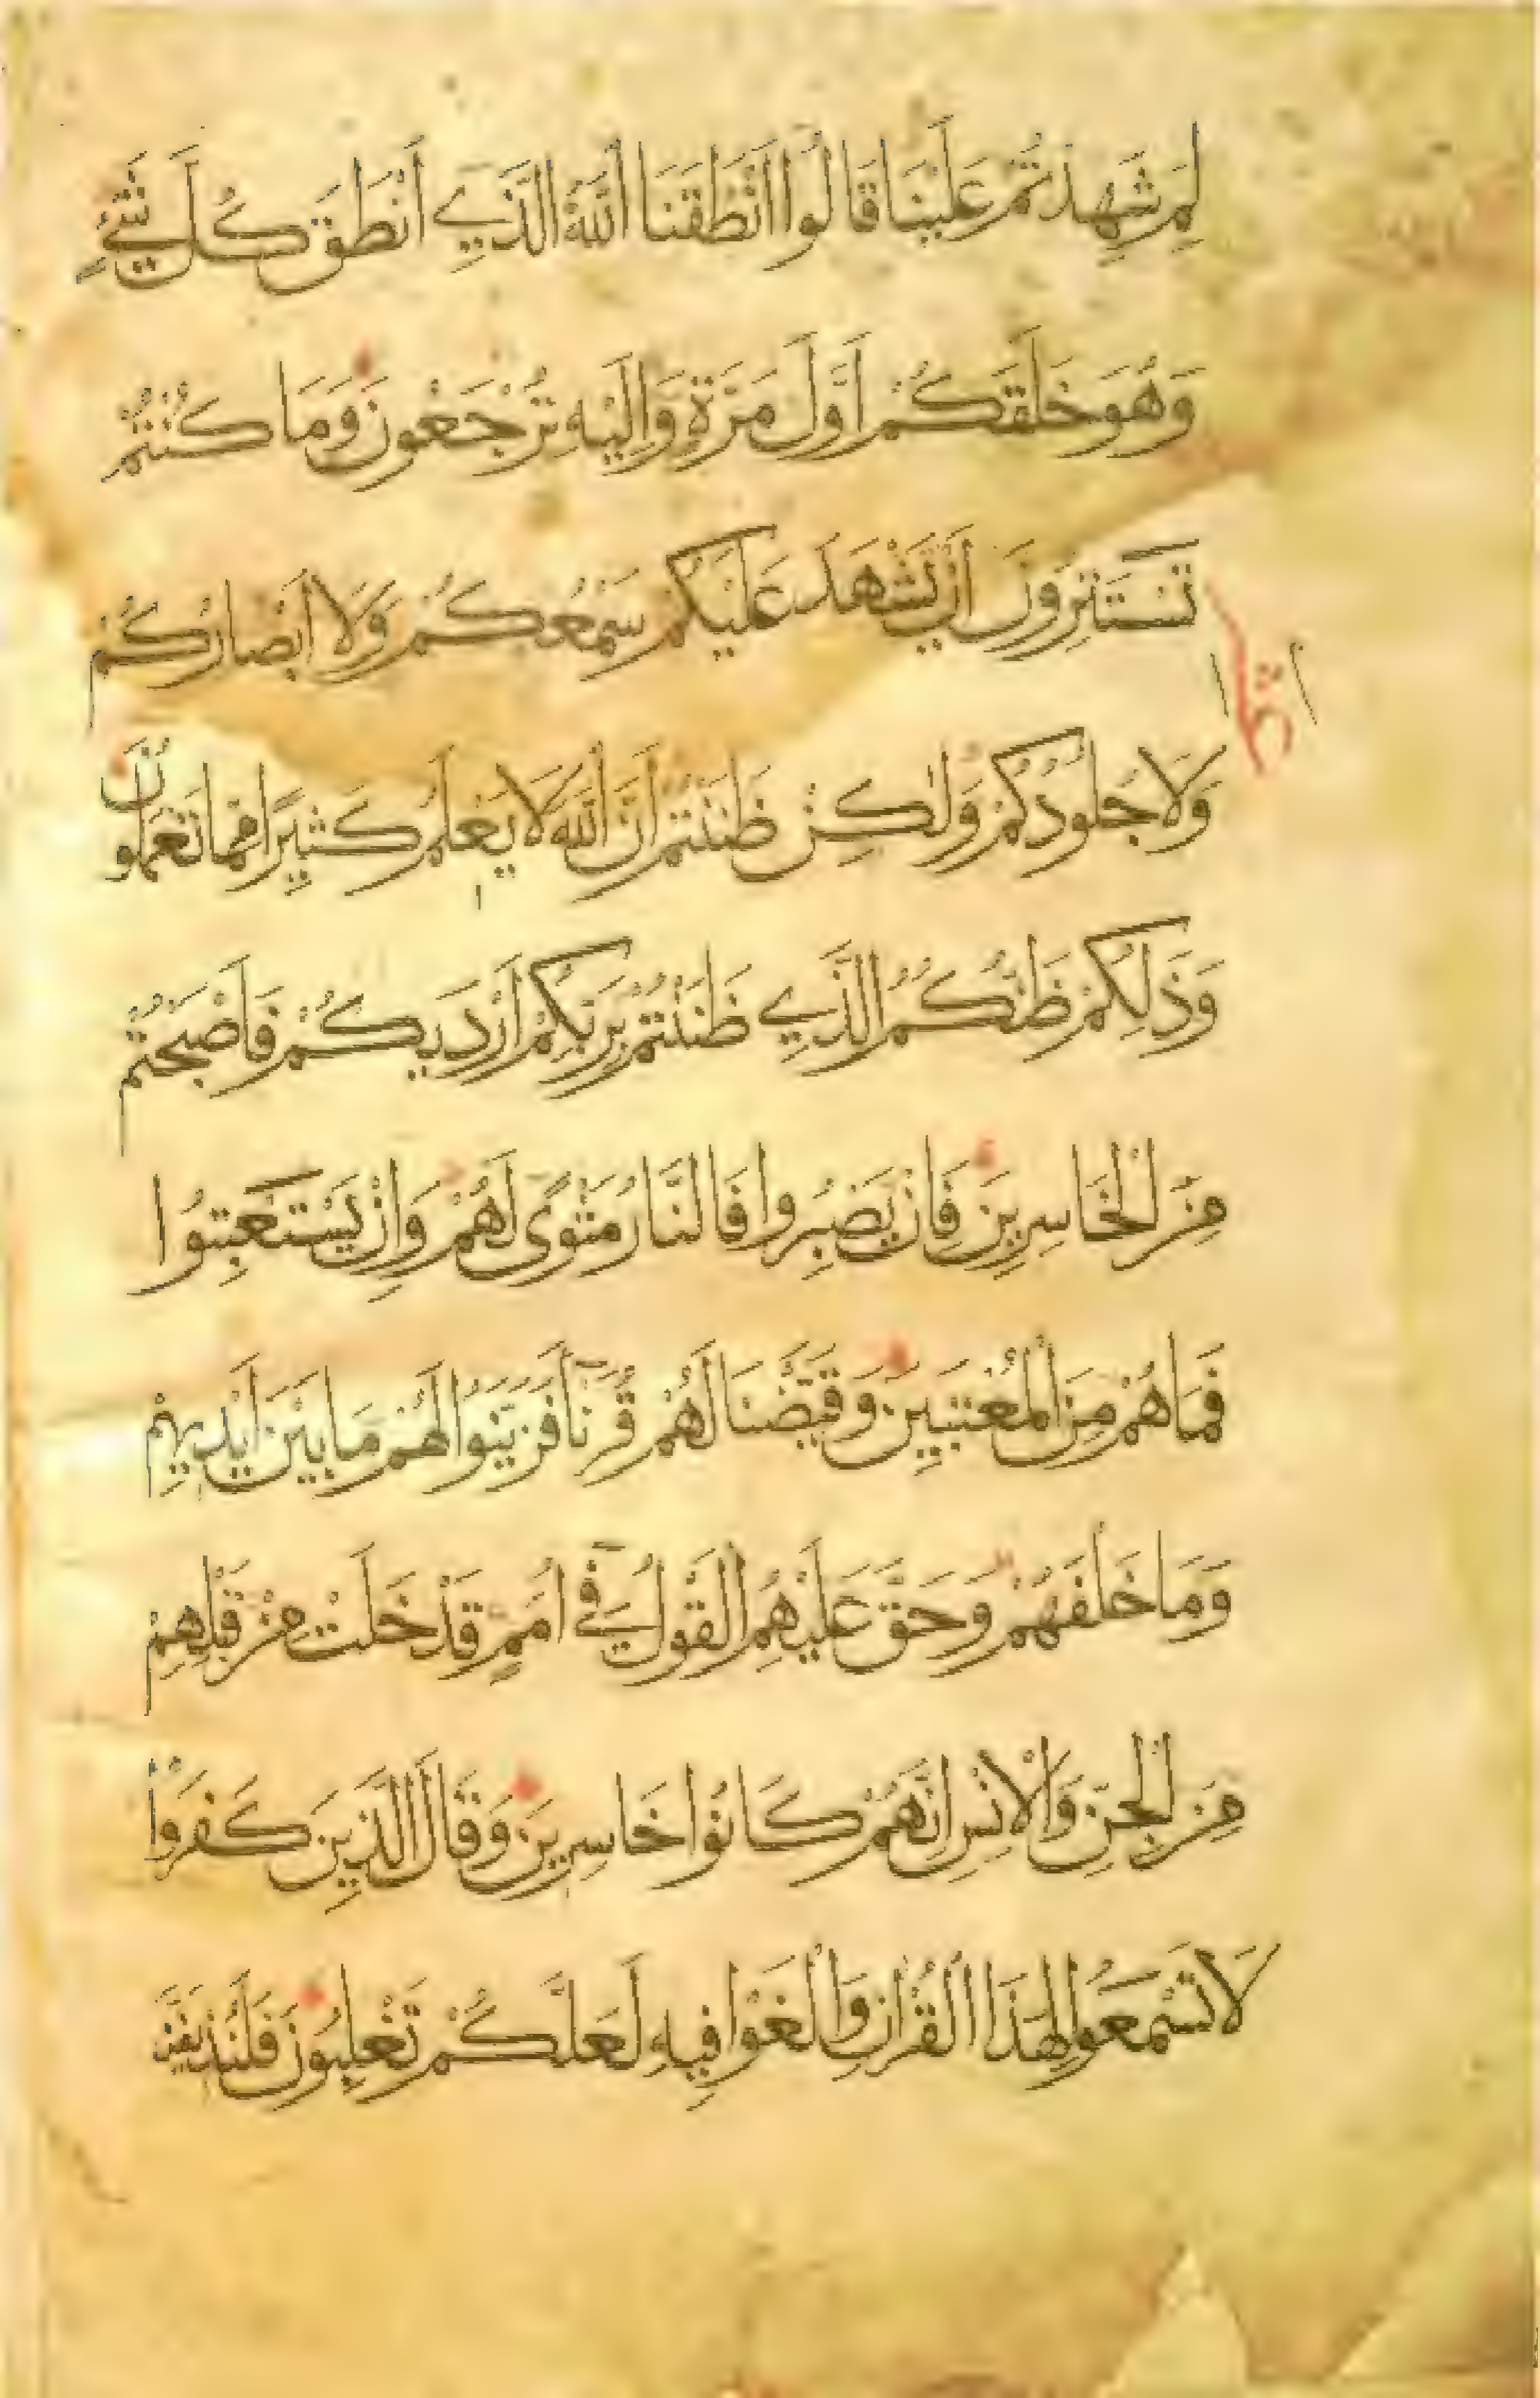 لِمَ شَهِدْتُمْ عَلَيْنَا قَالُوا أَنْطَقَنَا اللَّهُ الَّذِي أَنْطَقَ كُلَّ شَيْءٍ
وَهُوَ خَلَقَكُمْ أَوَّلَ مَرَّةٍ وَإِلَيْهِ تُرْجَعُونَ وَمَا كُنْتُمْ
تَسْتَتِرُونَ أَنْ يَشْهَدَ عَلَيْكُمْ سَمْعُكُمْ وَلَا أَبْصَارُكُمْ
وَلَا جُلُودُكُمْ وَلَكِنْ ظَنَنْتُمْ أَنَّ اللَّهَ لَا يَعْلَمُ كَثِيرًا مِمَّا تَعْمَلُونَ
وَذَلِكُمْ ظَنُّكُمُ الَّذِي ظَنَنْتُمْ بِرَبِّكُمْ أَرْدَيكُمْ فَأَصْبَحْتُمْ
مِنَ الْخَاسِرِينَ فَإِنْ يَصْبِرُوا فَالنَّارُ مَثْوًى لَهُمْ وَإِنْ يَسْتَعْتِبُوا
فَمَا هُمْ مِنَ الْمُعْتَبِينَ وَقَيَّضْنَا لَهُمْ قُرَنَآءَ فَزَيَّنُوا لَهُمْ مَا بَيْنَ أَيْدِيهِمْ
وَمَا خَلْفَهُمْ وَحَقَّ عَلَيْهِمُ الْقَوْلُ فِي أُمَمٍ قَدْ خَلَتْ مِنْ قَبْلِهِمْ
مِنَ الْجِنِّ وَالْإِنْسِ إِنَّهُمْ كَانُوا خَاسِرِينَ وَقَالَ الَّذِينَ كَفَرُوا
لَا تَسْمَعُوا لِهَذَا الْقُرْآنِ وَالْغَوْا فِيهِ لَعَلَّكُمْ تَغْلِبُونَ فَلَنُذِيقَنَّ